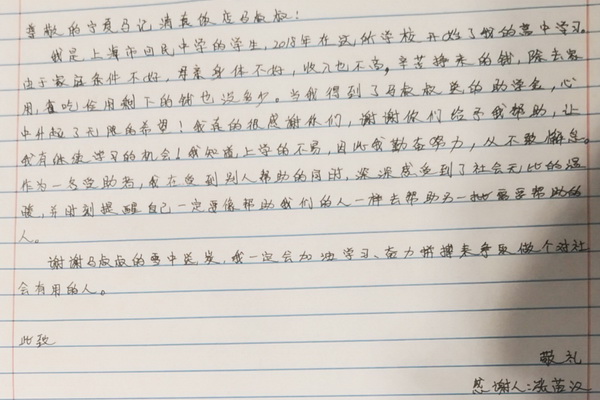 尊敬的宁夏马记清真饭店马叔叔:
我是上海市回民中学的学生,2018年在这所学校开始了我的高中学习。
由于家庭条件不好,母亲身体不好,收入也不高,辛苦挣来的钱,除去家
用,省吃俭用剩下的钱也没多少。当我得到了马叔叔发的助学金,心
中升起了无限的希望!我真的很感谢你们,谢谢你们给予我帮助,让
我有继续学习的机会!我知道上学的不易,因此我勤奋努力,从不敢懈怠。
作为一名受助者,我在受到别人帮助的同时,深深感受到了社会无比的温
暖,并时刻提醒自己一定要像帮助我们的人一样去帮助另一些需要帮助的
人。
谢谢马叔叔的雪中送炭,我一定会加强学习、奋力拼搏来争取做个对社
会有用的人。
此致
敬礼
感谢人: